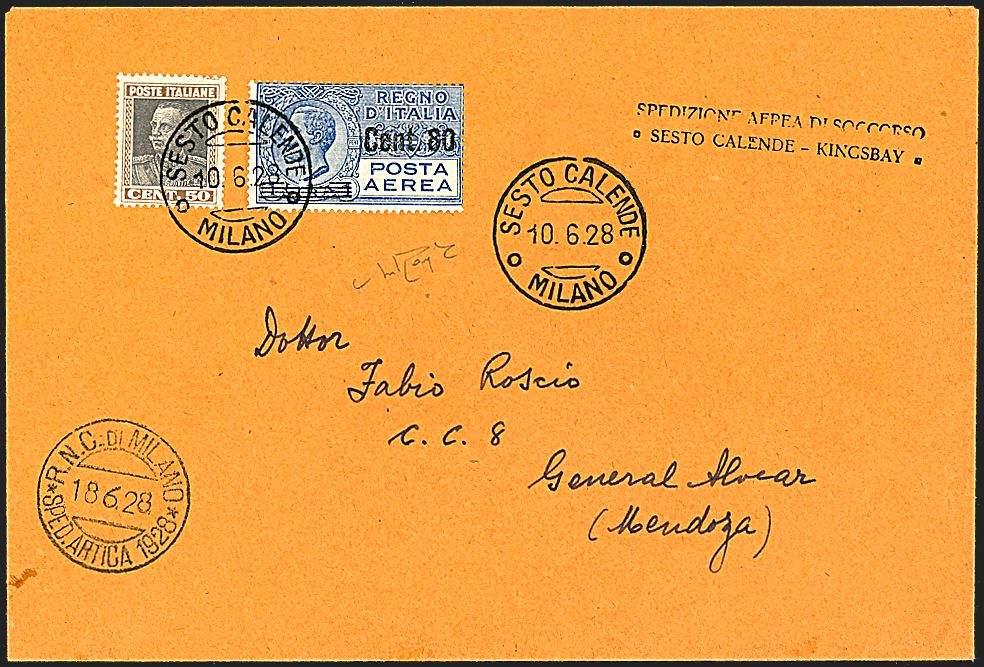 POSTE ITALIANE
CENT. 50
REGNO
D'ITALIA
Cent. 80
POSTA
AEREA
SESTO CALENDE
10.6.28
MILANO
SPEDIZIONE AEREA DI SOCCORSO
SESTO CALENDE - KINGSBAY
SESTO CALENDE
10.6.28
MILANO
Dottor
Fabio Roscio
C. C. 8
General Alvear
(Mendoza)
R.N.C. DI MILANO
18 6.28
*SPED. ARTICA 1928*